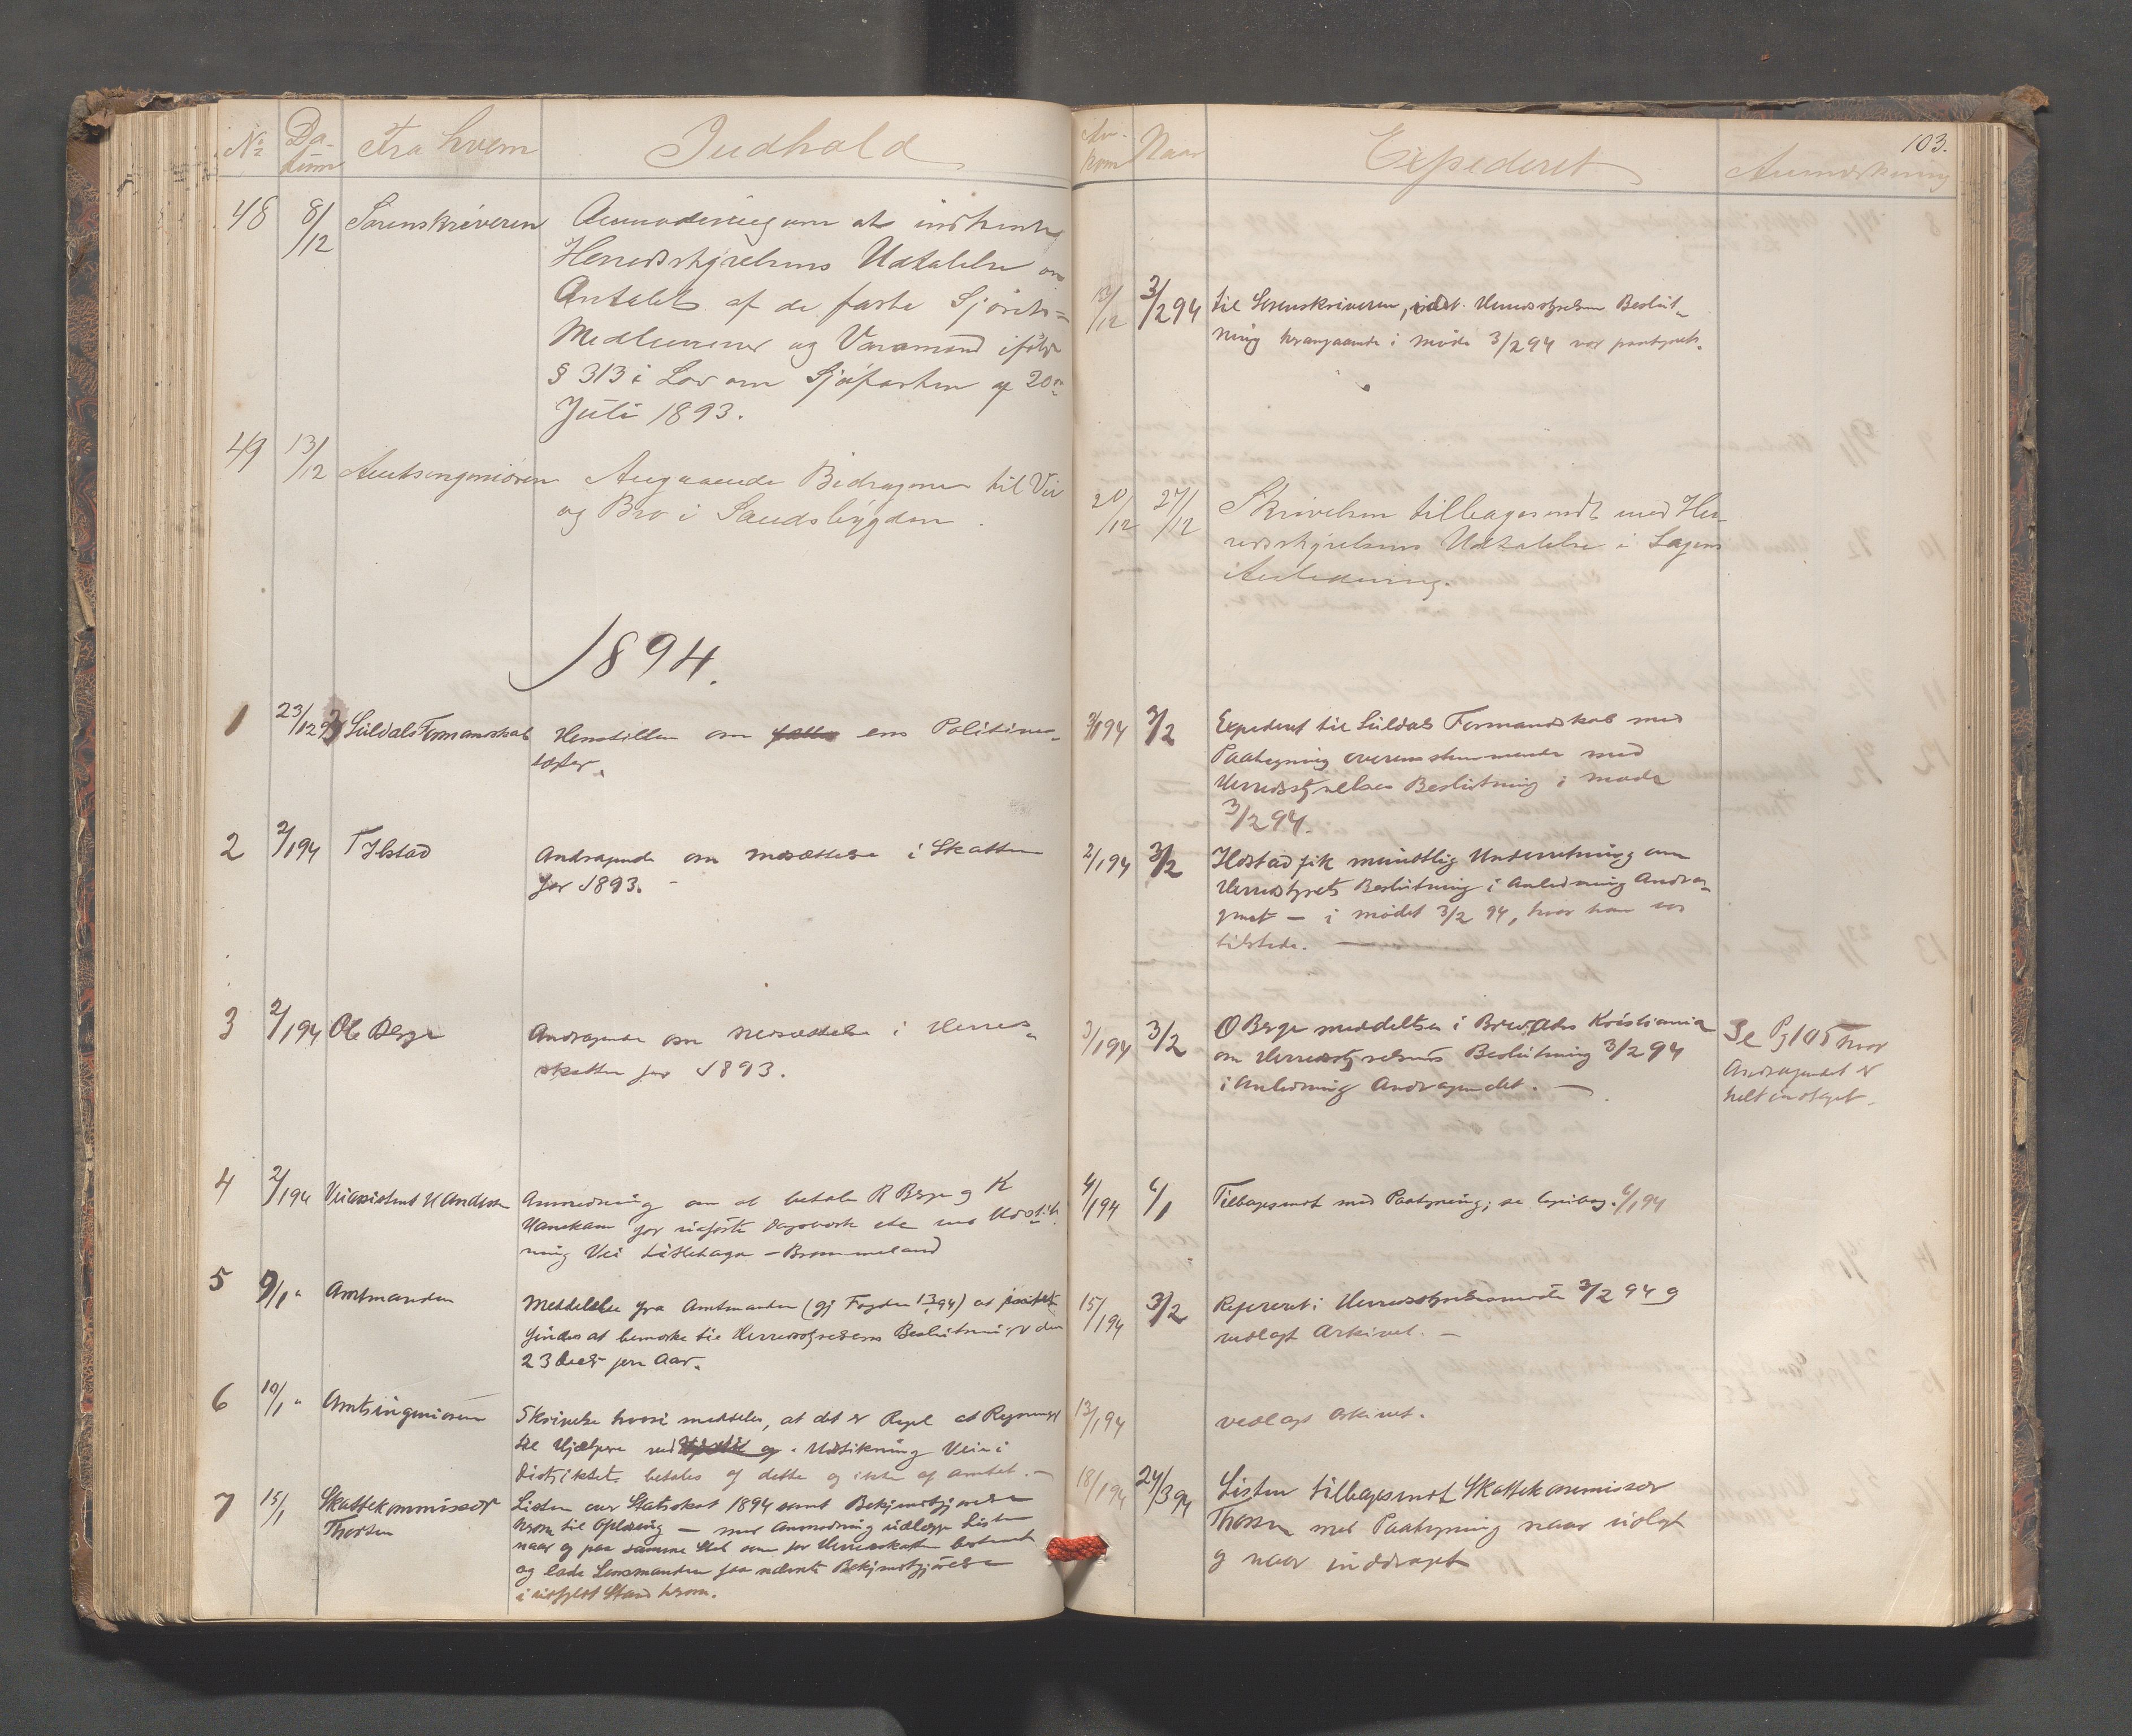 No Da- Fra hvem Indhold
tum
48 8/12 Sorenskriveren Anmodning om at indhente
Herredsstyrelsens Udtalelse om
Antallet af de faste Sjørets-
Medlemmer og Varamænd ifølge
§ 313 i Lov om Sjøfarten af 20de
Juli 1893.
49 13/12 Amtsingeniøren Angaaende Bidragene til Vei
og Bro i Sandsbygden.
1894.
1 23/12 93 Suldals Formandskab Henstillen om en Politimes-
ter.
2 2/1 94 T Ilstad Andragende om nedsættelse i Skatten
for 1893. -
3 2/1 94 Ole Berge Andragende om nedsættelse i Herreds-
skatten for 1893.
4 2/1 94 Veiassistent Andersen Anmodning om at betale R Berge og K
for udførte Dagsværk ved Udstik-
ning Vei - Brommeland
5 9/1 " Amtmanden Meddelelse fra Amtmanden (gj Fogden 13/1 94) at intet
findes at bemærke til Herredsstyrelsens Beslutninger den
23 Decbr forr. Aar.
6 10/1 " Amtsingeniøren Skrivelse hvori meddeles, at det er Regel at Regninger
til Hjælpere ved Udstikning Veie i
Distriktet betales af dette og ikke af Amtet. -
7 15/1 Skattekommissær Listen over Statsskat 1894 samt Bekjendtgjørelse
Thorsen herom til Oplæsning - med Anmodning udlægge Listen
naar og paa samme Sted som for Herredsskatten bestemt
og lade Lensmanden faa nævnte Bekjendtgjørelse
i udfyldt Stand herom.
103.
An- Naar Expederet Anmærkning
kom
13/12 3/2 94 til Sorenskriveren, Herredsstyrelsens Beslut-
ning herangaaende i møde 3/2 94 var paategnet.
20/12 27/12 Skrivelsen tilbagesendt med Her-
redsstyrelsens Udtalelse i Sagens
Anledning.
3/1 94 3/2 Expederet til Suldals Formandskab med
Paategning overensstemmende med
Herredsstyrelsens Beslutning i møde
3/2 94.
2/1 94 3/2 Ilstad fik mundtlig Underretning om
Herredsstyrets Beslutning i Anledning Andra-
gendet - i mødet 3/2 94, hvor han var
tilstede. -
3/1 94 3/2 O Berge meddeltes i Brev, Adrs Kristiania Se Pg 105 hvor
om Herredsstyrelsens Beslutning 3/2 94 Andragendet er
i Anledning Andragendet. - helt indtaget.
4/1 94 6/1 Tilbagesendt med Paategning; se Copibog. 6/1 94
15/1 94 3/2 Refereret i Herredsstyrelsesmøde 3/2 94 og
vedlagt Arkivet. -
13/1 94 vedlagt Arkivet.
18/1 94 24/3 94 Listen tilbagesendt Skattekommissær
Thorsen med Paategning naar udlagt
og naar inddraget